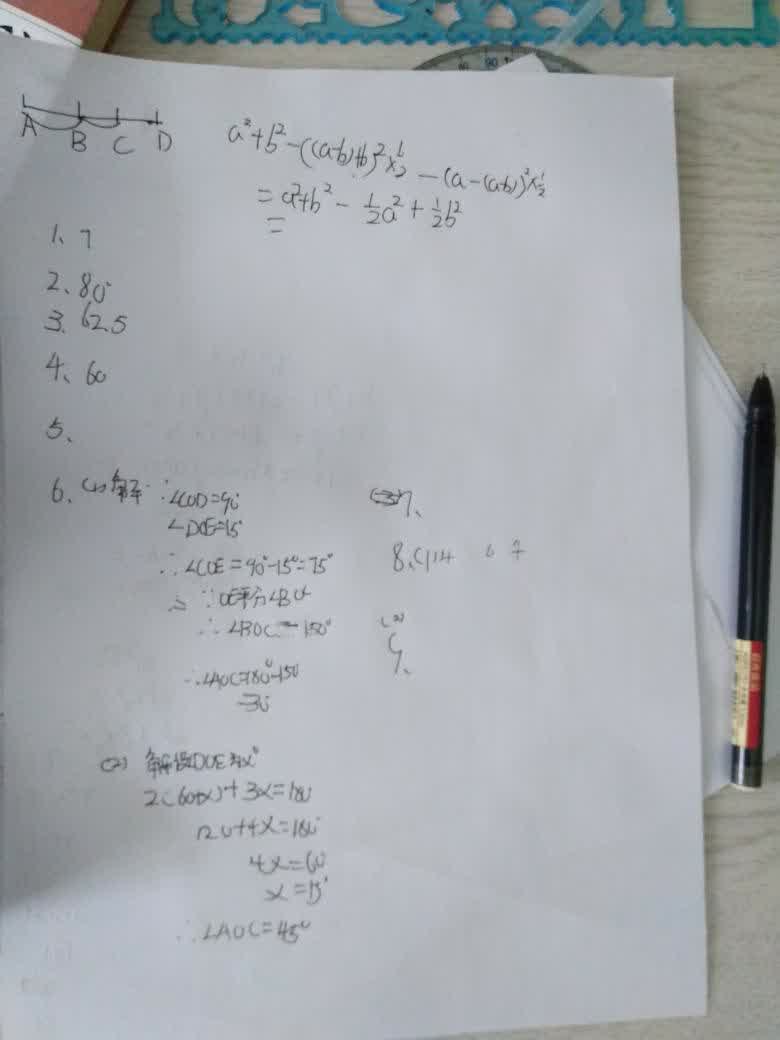 A B C D
a²+b²-((a-b)+b)²×½-(a-(a-b))²×½
=a²+b²-½a²+½b²
=
1、7
2、80°
3、62.5
4、60
5、
6、(1)解:∵∠COD=90°
∠DOE=15°
∴∠COE=90°-15°=75°
∵OE平分∠BOC
∴∠BOC=150°
∴∠AOC=180°-150
=30°
(2) 解设DOE为x°
2(60+x)+3x=180
120+4x=180°
4x=60
x=15°
∴∠AOC=45°
7、
8、(1)14 6 7
(2)
9、